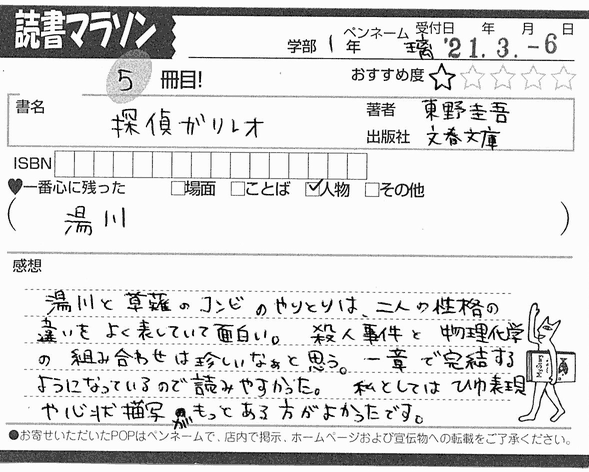 読書マラソン
学部 1年 ペンネーム 璃 受付日 年 月 日 '21.3.-6
5 冊目!
おすすめ度 ★☆☆☆☆
書名 探偵ガリレオ
著者 東野圭吾
出版社 文春文庫
ISBN
♥一番心に残った □場面 □ことば ☑人物 □その他
( 湯川 )
感想
湯川と草薙のコンビのやりとりは、二人の性格の
違いをよく表していて面白い。 殺人事件と物理化学
の組み合わせは珍しいなぁと思う。一章で完結する
ようになっているので読みやすかった。 私としてはひゆ表現
や心状描写がもっとある方がよかったです。
●お寄せいただいたPOPはペンネームで、店内で掲示、ホームページおよび宣伝物への転載をご了承ください。